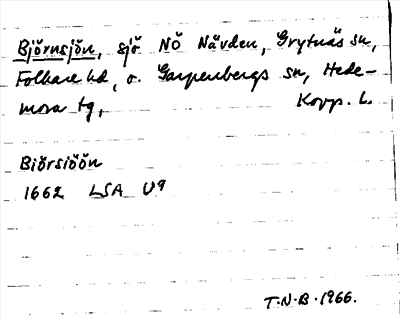 Björnsjön, sjö NÖ Nävden, Grytnäs sn,
Folkare hd, o. Garpenbergs sn, Hede-
mora tg, Kopp. l.
Biörsiöön
1662 LSA U9
T.N.B. 1966.